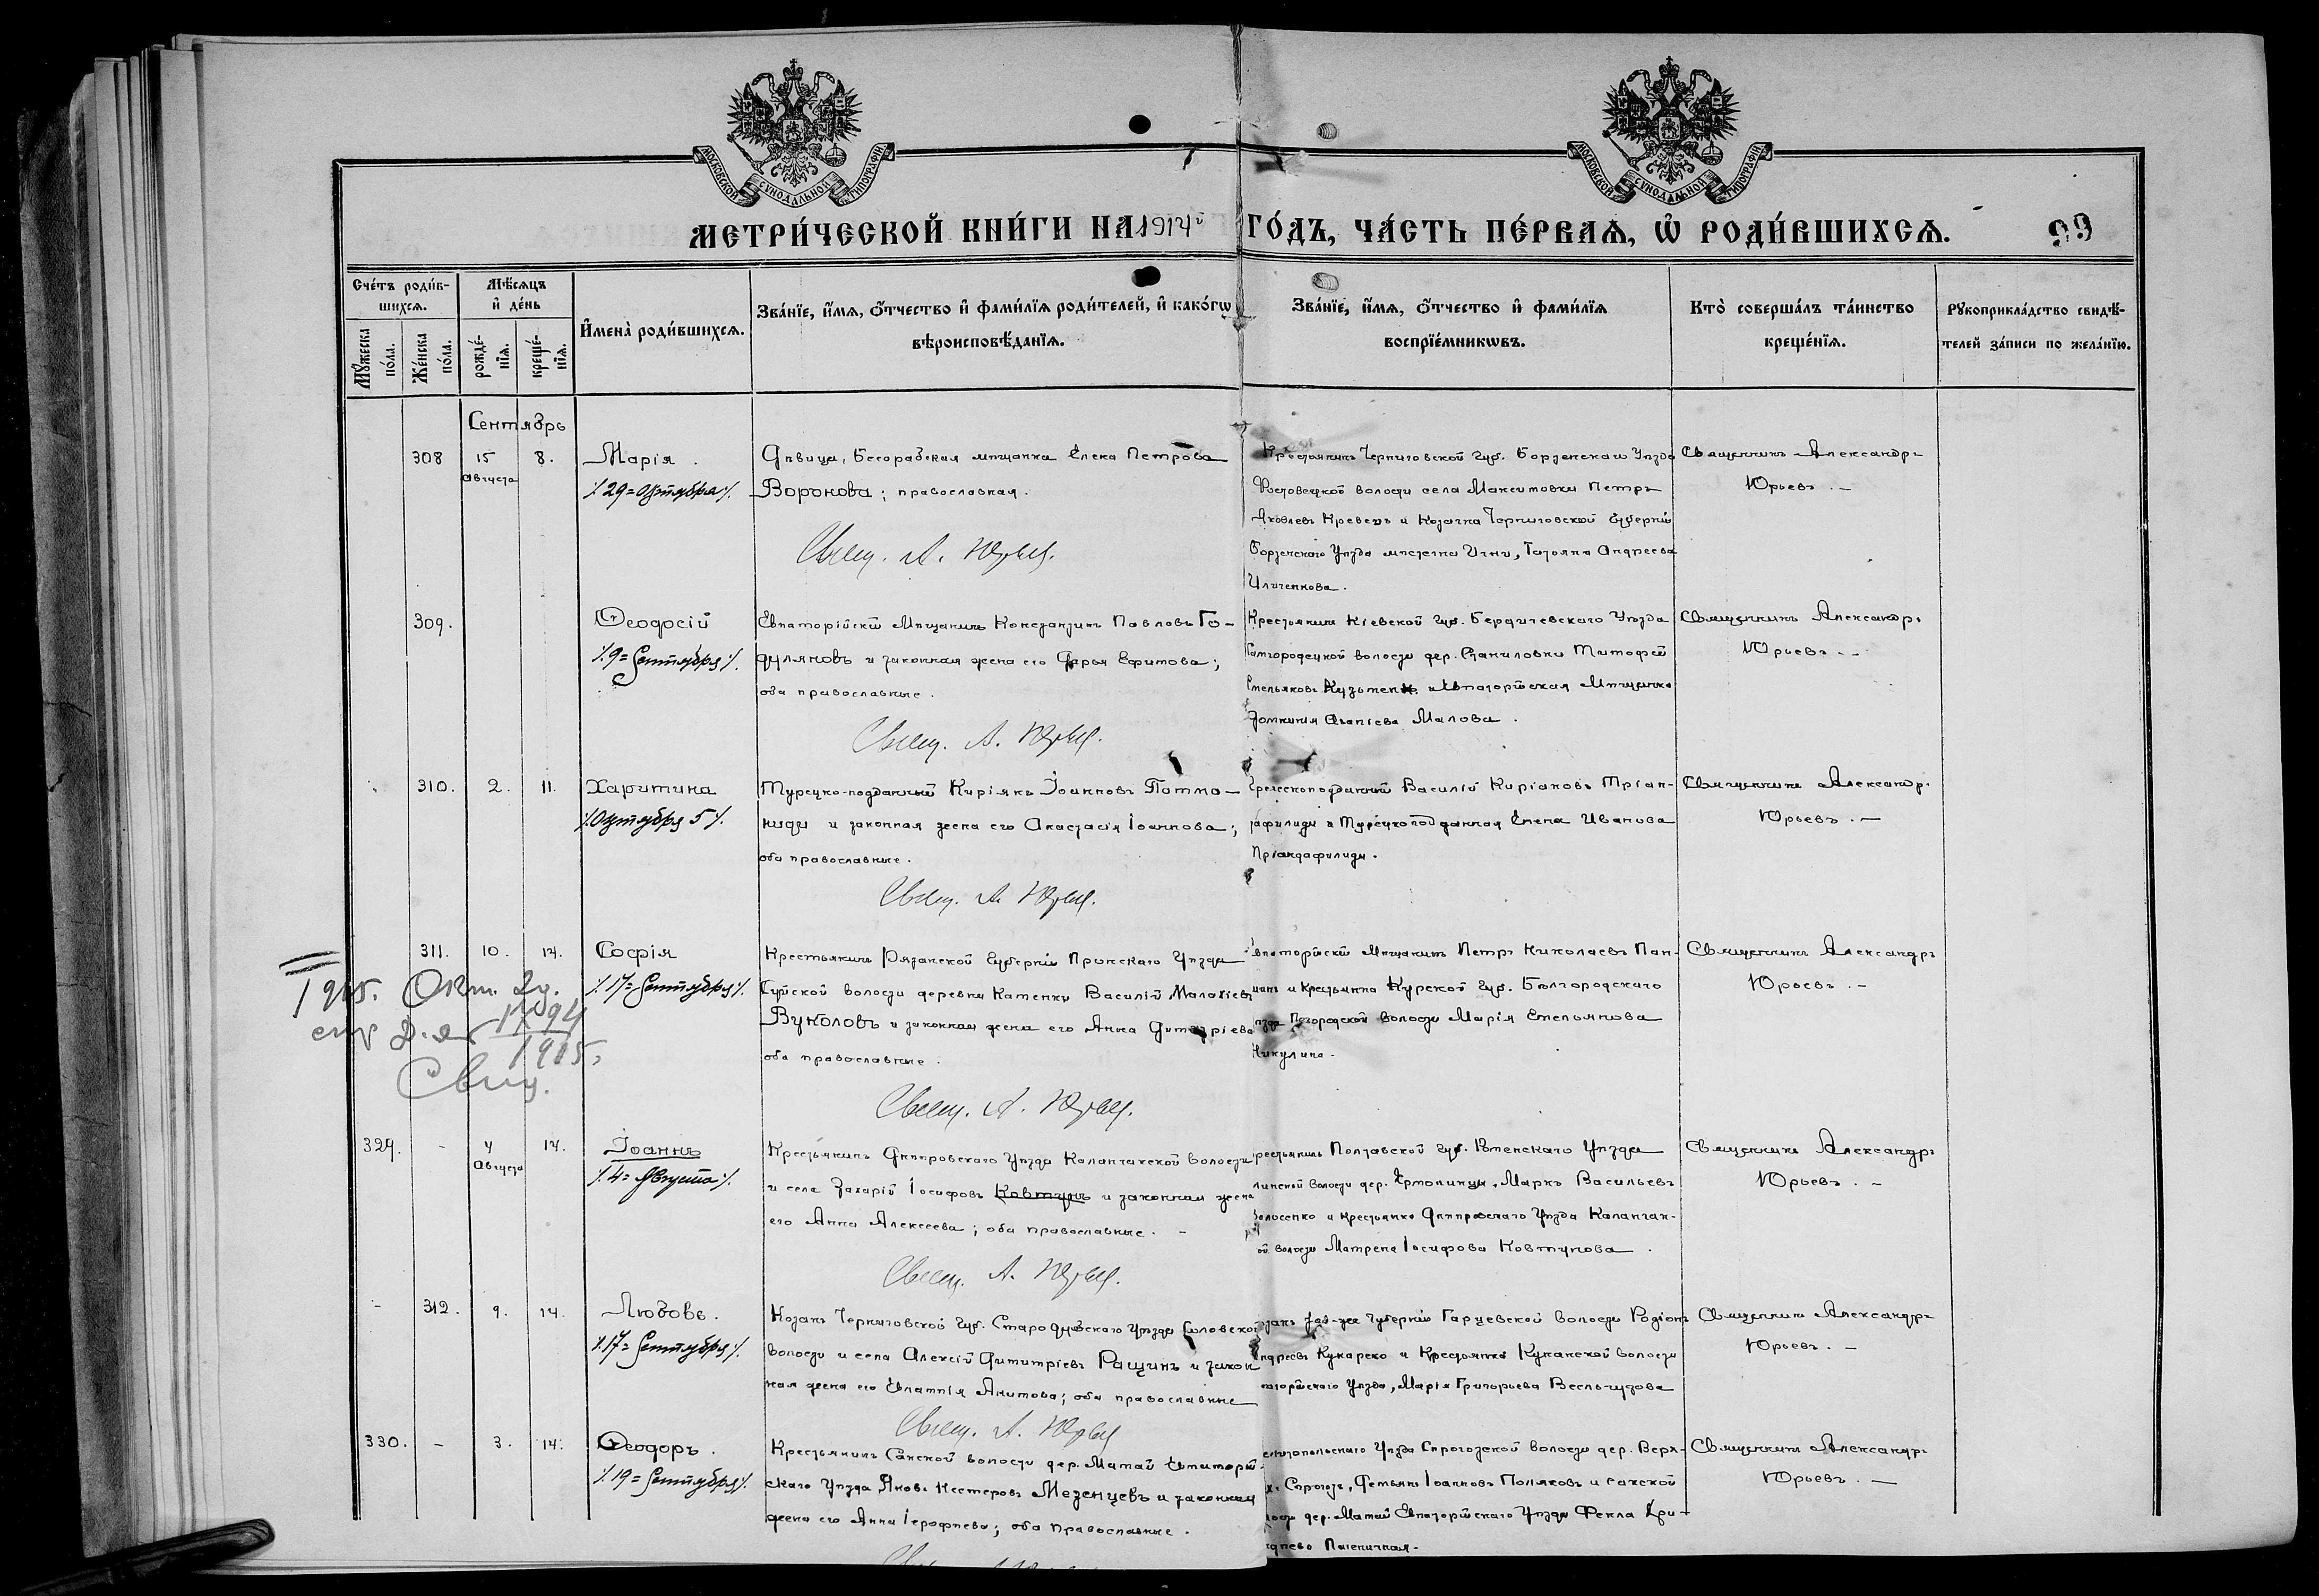 МОСКОВСКОЙ СУНОДАЛЬНОЙ ТИПОГРАФІИ
МОСКОВСКОЙ СУНОДАЛЬНОЙ ТИПОГРАФІИ
МЕТРИ́ЧЕСКОЙ КНИ́ГИ НА 1914й ГО́ДЪ, ЧА́СТЬ ПЕ́РВАѦ, Ѡ҆ РОДИ́ВШИХСѦ. 99
Сче́тъ роди́вшихсѧ.
Мꙋ́жеска по́ла.
Же́нска по́ла.
Мѣ́сѧцъ и҆ де́нь
рожде́нїѧ.
креще́нїѧ.
И҆мена̀ роди́вшихсѧ.
Зва́нїе, и҆́мѧ, ѻ҆́тчество и҆ фами́лїѧ роди́телей, и҆ како́гѡ
вѣроисповѣ́данїѧ.
Зва́нїе, и҆́мѧ, ѻ҆́тчество и҆ фами́лїѧ
воспрїе́мникѡвъ.
Кто̀ соверша́лъ та́инство
креще́нїѧ.
Рꙋкоприкла́дство свидѣ́телей за́писи по жела́нїю.
Сентябрь
308 15 Августа 8.
Марія.
29=Октября
Дѣвица, Бесарабская мѣщанка Елена Петрова
Воронова; православная.
Свящ. А. Юрьев.
Крестьянинъ Черниговской губ. Борзенскаго Уѣзда
волости села Максимовки Петръ
Яковлевъ Кревецъ и Козачка Черниговской Губерніи
Борзенскаго Уѣзда мѣстечка Ични, Татьяна Андреева
Ильченкова.
Священникъ Александръ
Юрьевъ.—
309.
Ѳеодосій
9=Сентября
Евпаторійскій Мѣщанинъ Константинъ Павловъ Го-
дуляновъ и законная жена его Дарья Ефимова;
оба православные.
Свящ. А. Юрьев.
Крестьянинъ Кіевской губ. Бердичевскаго Уѣзда
Самгородецкой волости дер. Даниловки Тимофей
Емельяновъ Кузьменко и Евпаторійская Мѣщанка
Домникія Малова.
Священникъ Александръ
Юрьевъ.—
310. 2. 11.
Харитина
Октября 5
Турецко-подданный Киріякъ Іоанновъ Потма-
ниди и законная жена его Анастасія Іоаннова;
оба православные.
Свящ. А. Юрьев.
Греческоподданный Василій Киріаковъ Тріан-
дафилиди и Турецкоподданная Елена Иванова
Тріандафилиди.
Священникъ Александръ
Юрьевъ.—
311. 10. 14.
Софія
17=Сентября
Крестьянинъ Рязанской Губерніи Пронскаго Уѣзда
волости деревни Каменки Василій Малахіевъ
Вуколовъ и законная жена его Анна Димитріева
оба православные.
Свящ. А. Юрьев.
Евпаторійскій Мѣщанинъ Петръ Николаевъ Пан-
и Крестьянка Курской губ. Бѣлгородскаго
волости Марія Емельянова
Никулина.
Священникъ Александръ
Юрьевъ.—
1915. Окт.
1915.
Свящ.
329. - 4 Августа 14.
Іоаннъ
4=Августа
Крестьянинъ Днѣпровскаго Уѣзда Каланчакской волости
и села Захарій Іосифовъ Ковтунъ и законная жена
его Анна Алексеева; оба православные. -
Свящ. А. Юрьев.
Крестьянинъ Полтавской губ. Роменскаго Уѣзда
волости дер. Ярмолинцы, Маркъ Васильевъ
и крестьянка Днѣпровскаго Уѣзда Каланчак-
ой волости Матрена Іосифова Ковтунова.
Священникъ Александръ
Юрьевъ.—
- 312. 9. 14.
Любовь.
17=Сентября
Козакъ Черниговской губ. Стародубскаго Уѣзда
волости и села Алексій Димитріевъ Ращинъ и закон
ная жена его Евлампія Акимова; оба православные
Свящ. А. Юрьев
Козакъ той-же Губерніи Гарцевской волости Родіонъ
Андреевъ Кукареко и Крестьянка волости
Евпаторійскаго Уѣзда, Марія Григорьева
Священникъ Александръ
Юрьевъ.—
330. - 3. 14.
Ѳеодоръ.
19=Сентября
Крестьянинъ Сакской волости дер. Мамай Евпаторій-
скаго Уѣзда Яковъ Нестеровъ Мезенцевъ и законная
жена его Анна Іерофеева; оба православные.
Мелитопольскаго Уѣзда Сирогозской волости дер. Верх-
Сирогозъ, Демьянъ Іоанновъ Поляковъ и Сакской
волости дер. Мамай Евпаторійскаго Уѣзда Фекла
Пшеничная.
Священникъ Александръ
Юрьевъ.—